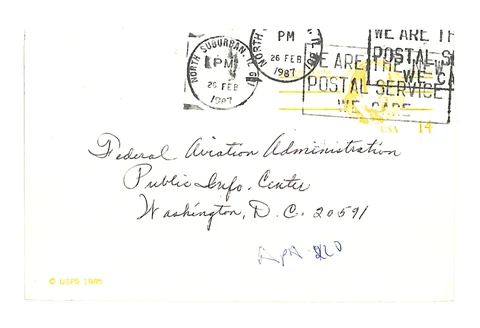 NORTH SUBURBAN, IL 601
PM
26 FEB
1987
PM
26 FEB
1987
WE ARE TH
POSTAL S
WE CA
WE ARE THE NEW
POSTAL SERVICE
WE CARE
USA 14
Federal Aviation Administration
Public Info. Center
Washington, D.C. 20591
APA 220
© USPS 1985